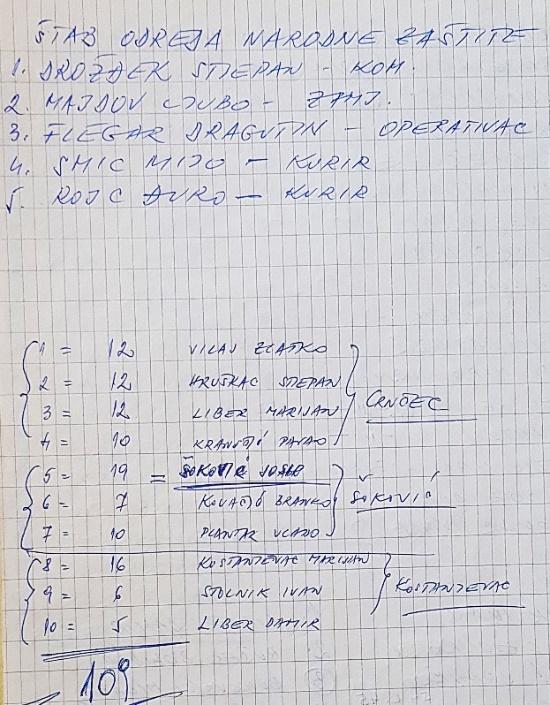 ŠTAB ODREDA NARODNE ZAŠTITE
1. DROŽĐEK STJEPAN - KOM.
2. MAJDOV LJUBO - ZAMJ.
3. FLEGAR DRAGUTIN - OPERATIVAC
4. SMIC MIJO - KURIR
5. ROJC ĐURO - KURIR
1 = 12 VILAJ ZLATKO
2 = 12 HRUŠKAC STJEPAN
3 = 12 LIBER MARIJAN
CRNČEC
4 = 10 KRANJČIĆ PAVAO
5 = 19 = ŠOKOVIĆ JOSIP
6 = 7 KOVAČIĆ BRANKO
ŠOKOVIĆ
7 = 10 PLANTAK VLADO
8 = 16 KOSTANJEVAC MARIJAN
9 = 6 STOLNIK IVAN
KOSTANJEVAC
10 = 5 LIBER DAMIR
109